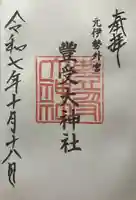 奉拝
元伊勢外宮
豊受大神社
令和七年十月十八日